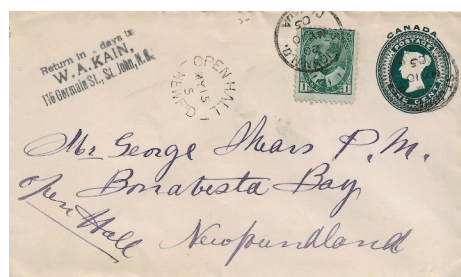 Return in - days to
W. A. KAIN,
116 Germain St., St. John, N.B.
OPEN HALL
NEWF'D
MY 15
5
1 1
CANADA
POSTAGE
ONE CENT
Mr George Shears P. M.
Bonabesta Bay
Open Hall
Newfoundland